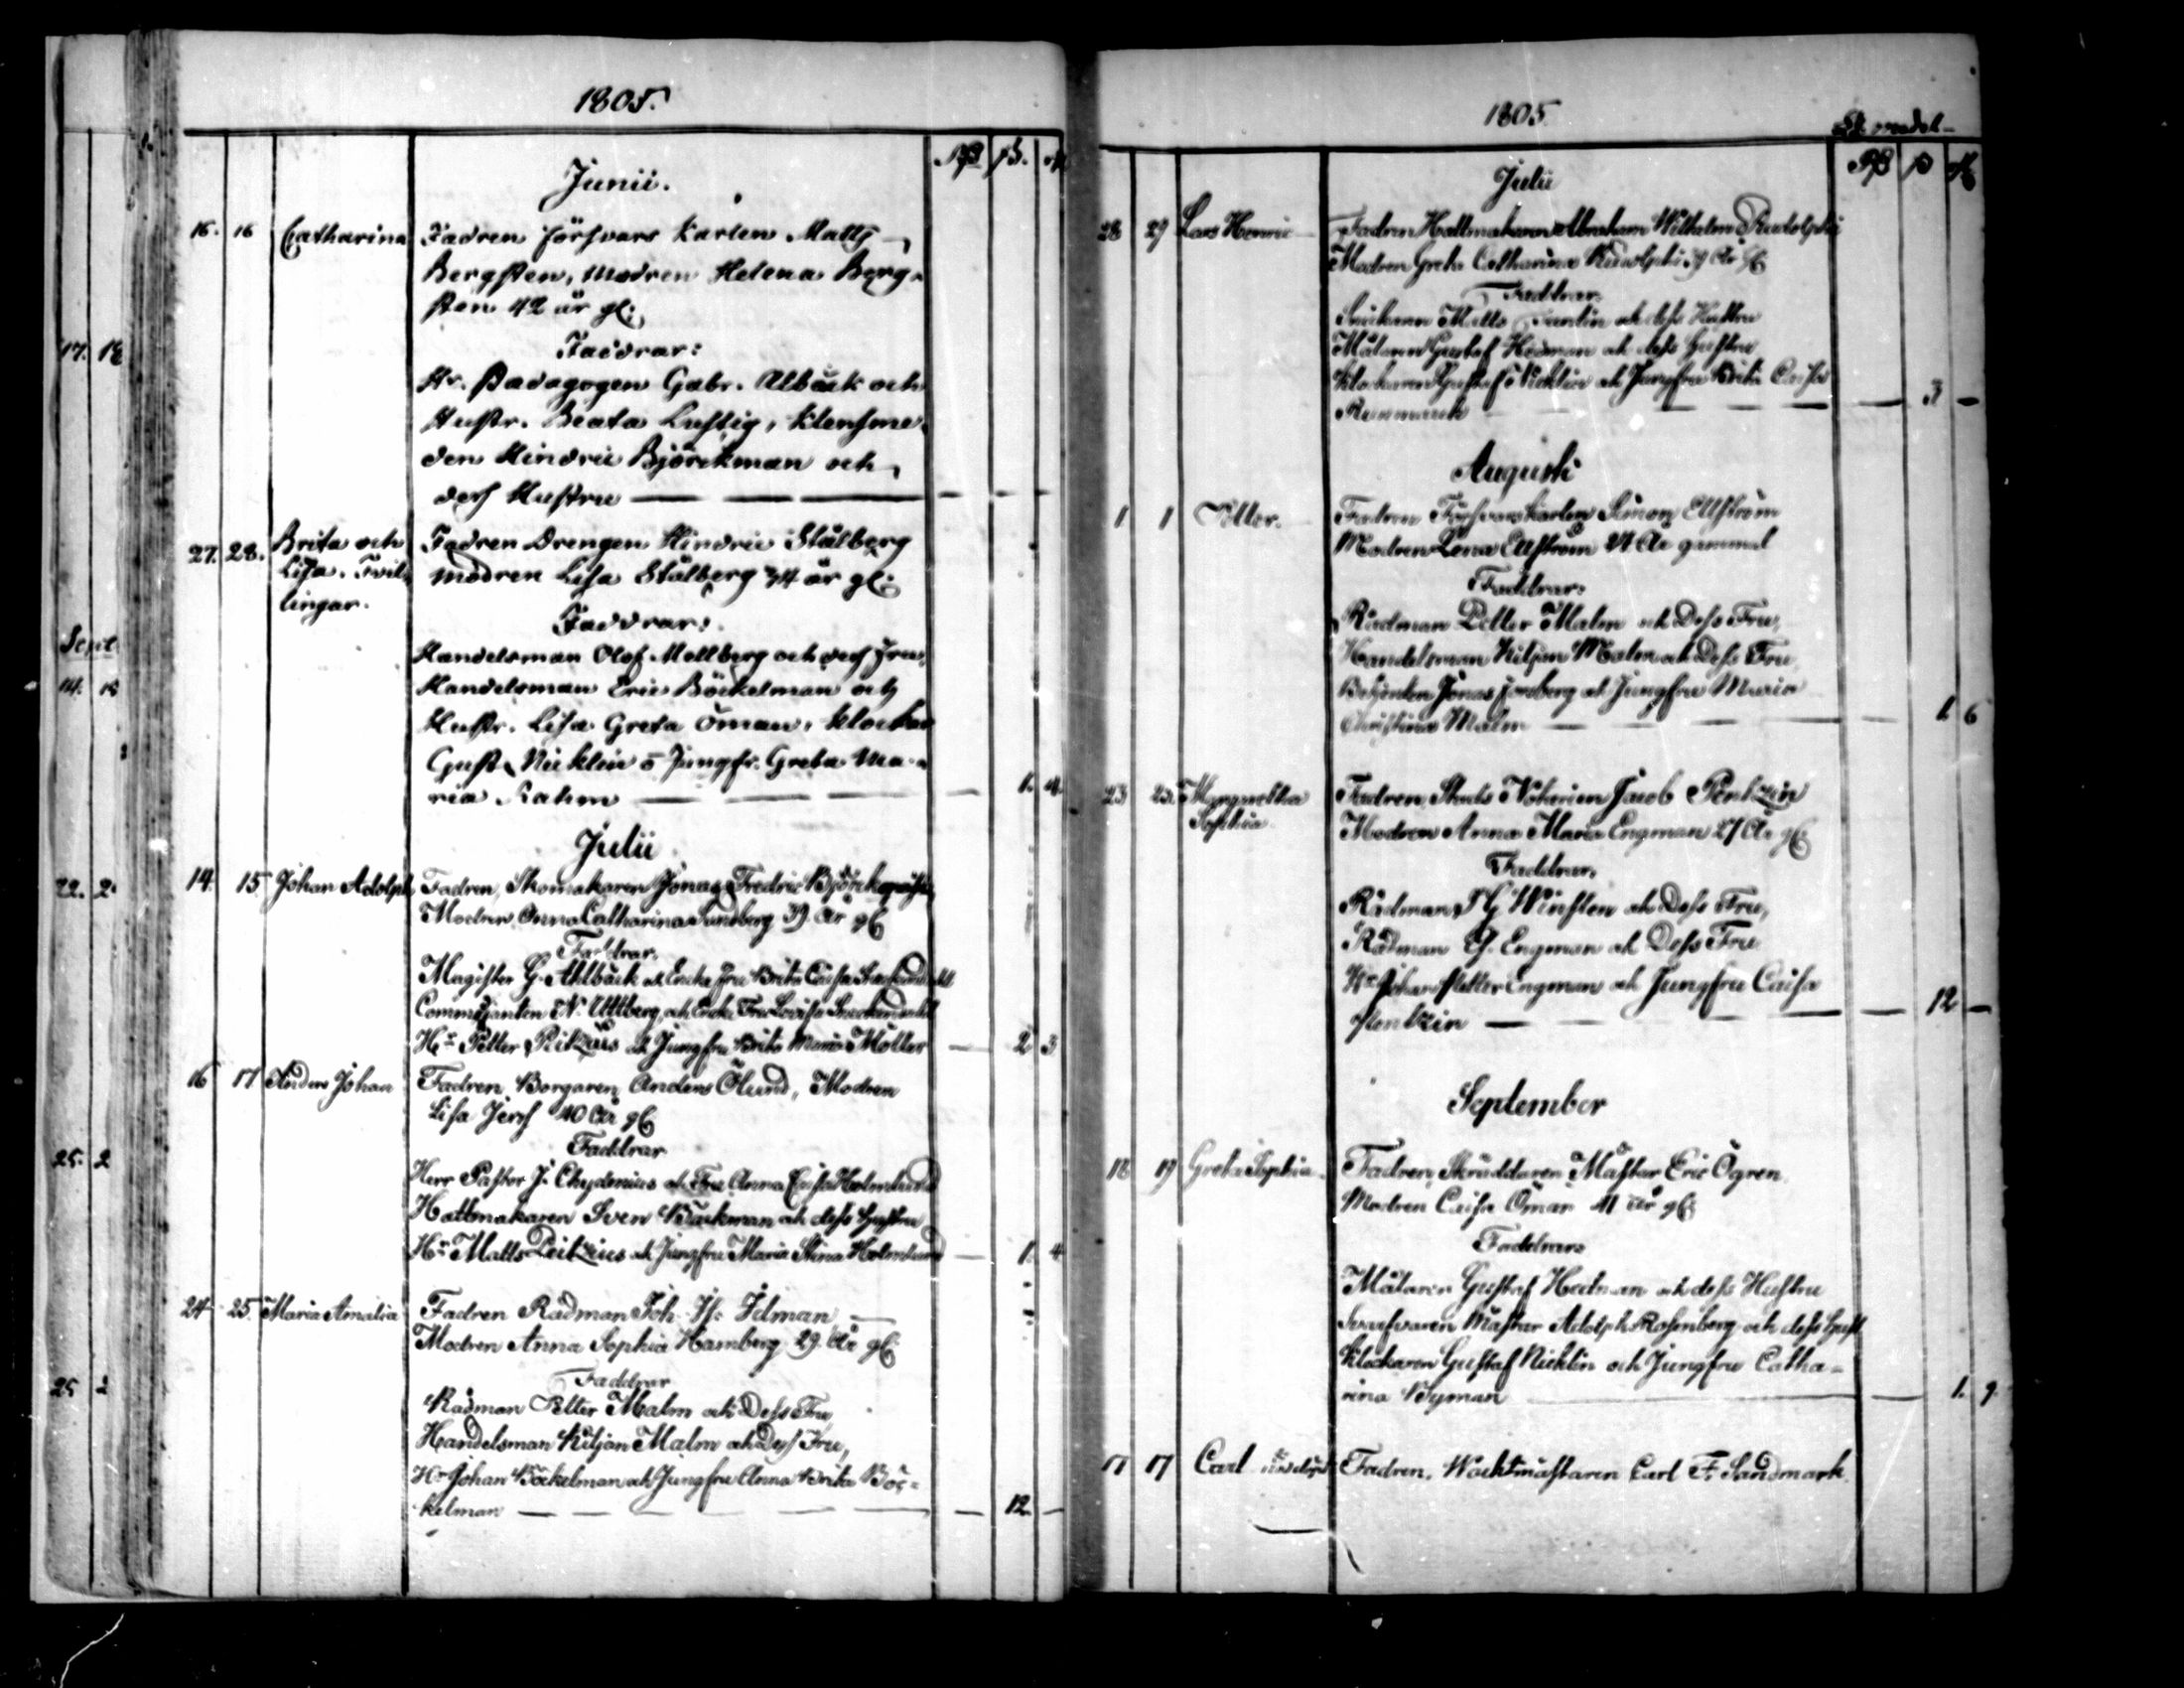 1805.
Rg ß. rs
Junii.
16. 16 Catharina Fadren Försvars Karlen Matts
Bergsten, Modren Helena Berg-
sten 42 år gl:
Faddrar:
Hr. Pædagogen Gabr. Ahlbäck och
Hustr. Beata Lustig, Klensme-
den Hindric Björckman och
dess Hustru
27. 28. Brita och Fadren Drengen Hindric Stålberg
Lisa. Tvil- Modren Lisa Stålberg 34 år gl:
lingar.
Faddrar:
Handelsman Olof Mellberg och dess Fru,
Handelsman Eric Böckelman och
Hustr. Lisa Greta Öman, Klockar
Gust. Nicklin o Jungfr. Greta Ma-
ria Rahm 1. 4.
Julii
14. 15. Johan Adolph Fadren, Skomakaren Jonas Fredric Björckqvist,
Modren Anna Catharina Sundberg 39 År gl
Faddrar,
Magister G. Ahlbäck och Encke Fru Brita Caisa
N. Uttberg, och Encke Fru Lovisa
Hr Petter Ritzius och Jungfru Brita Maria Möller 2 3
16 17 Anders Johan Fadren, Borgaren Anders Ölund, Modren
Lisa Jerss 40 År gl
Faddrar
Herr Pastor J. Chydenius och Fru Anna Caisa Holmlund
Hattmakaren Sven Bäckman och dess Hustru
Hr Matts Peitzius och Jungfru Maria Stina Holmlund 1. 4
24 25. Maria Amalia Fadren Rådman Joh. Is. Idman
Modren Anna Sophia Hamberg 29. År gl:
Faddrar
Rådman Petter Malm och Dess Fru,
Handelsman Kiljan Malm och Dess Fru,
Hr Johan Böckelman och Jungfru Anna Brita Böc-
kelman 12.
17. 18
Sept
14. 15
22. 2
25. 2
25 2
1805
Julii
28 29 Lars Henric Fadren Hattmakaren Abraham Wilhelm Rudolphi
Modren Greta Catharina Rudolphi 39 År gl
Faddrar,
Matts och dess Hustru
Målaren Gustaf Hedman och dess Hustru
Klockaren Gustaf Nicklin och Jungfru Brita Caisa
Renmarck 3
Augusti
1 1 Petter. Fadren Försvarskarlen Simon Ellström
Modren Lena Ellström 24 År gammal
Faddrar,
Rådman Petter Malm och Dess Fru,
Handelsman Kiljan Malm och Dess Fru,
Betjenten Jonas och Jungfru Maria
Christina Malm 1. 6
23 25. Margaretha Fadren, Stads Notarien Jacob Pentzin
Sophia. Modren Anna Maria Engman 27 År gl
Faddrar,
Rådman J G Winsten och Dess Fru,
Rådman G. Engman och Dess Fru
Hr Johan Petter Engman och Jungfru Caisa
Pentzin 12
September
18 19 Greta Sophia. Fadren, Skräddaren Mästar Eric Ögren,
Modren Caisa Öman 41 år gl:
Faddrar
Målaren Gustaf Hedman och dess Hustru
Svarfvaren Mästar Adolph Rosenberg och dess Hust
Klockaren Gustaf Nicklin och Jungfru Catha-
rina Byman 1. 9
17 17 Carl Fadren, Wacktmästaren Carl F. Sandmark.